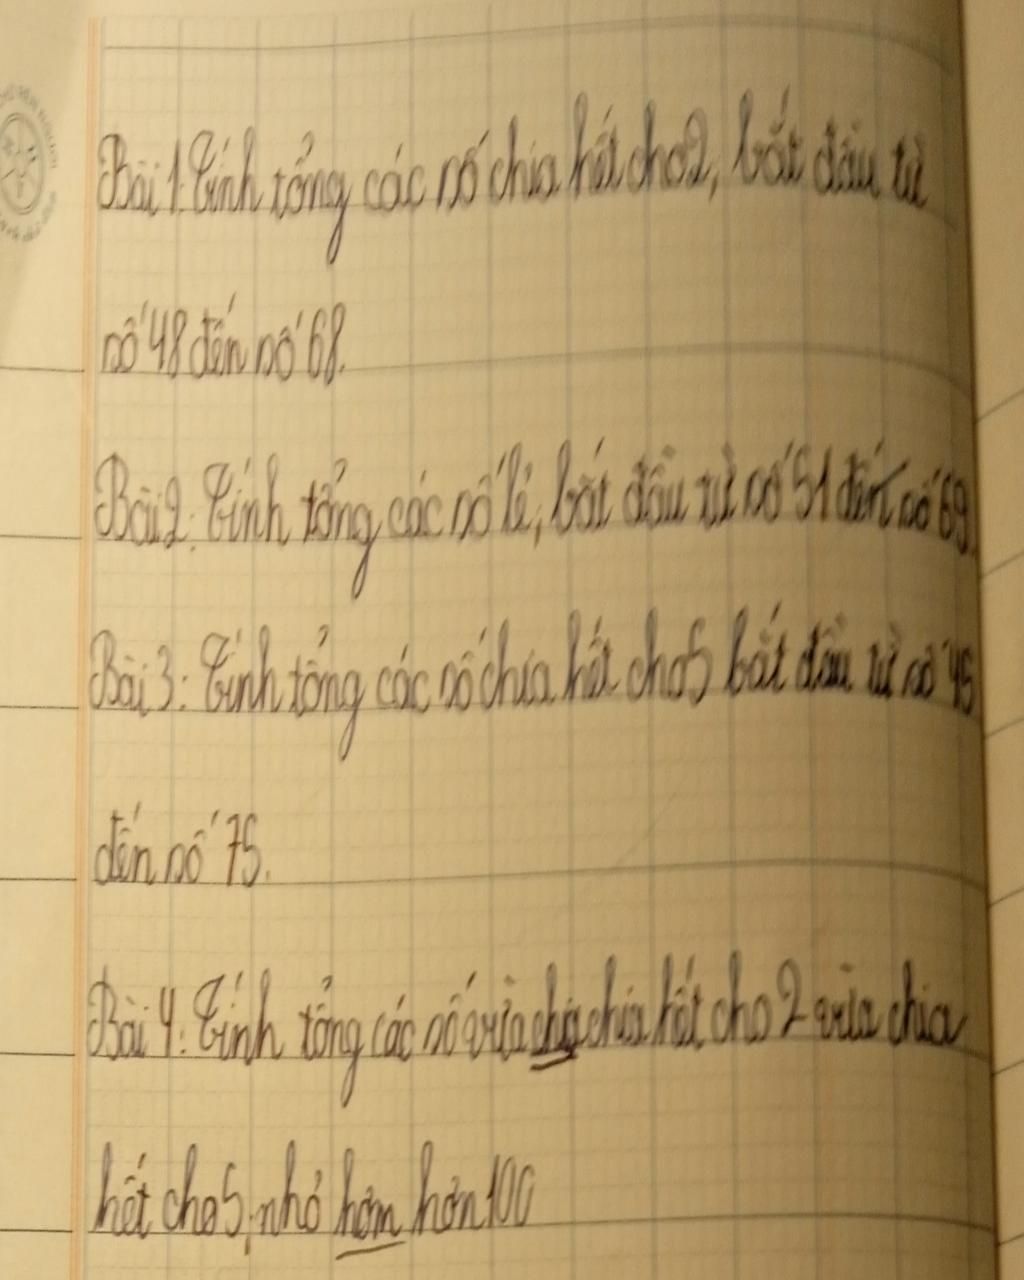 Bài 1. Tính tổng các số chia hết cho 2, bắt đầu từ
số 48 đến số 68.
Bài 2. Tính tổng các số lẻ, bắt đầu từ số 51 đến số 69.
Bài 3: Tính tổng các số chia hết cho 5 bắt đầu từ số 45
đến số 75.
Bài 4: Tính tổng các số vừa chia chia hết cho 2 vừa chia
hết cho 5, nhỏ hơm hơn 100